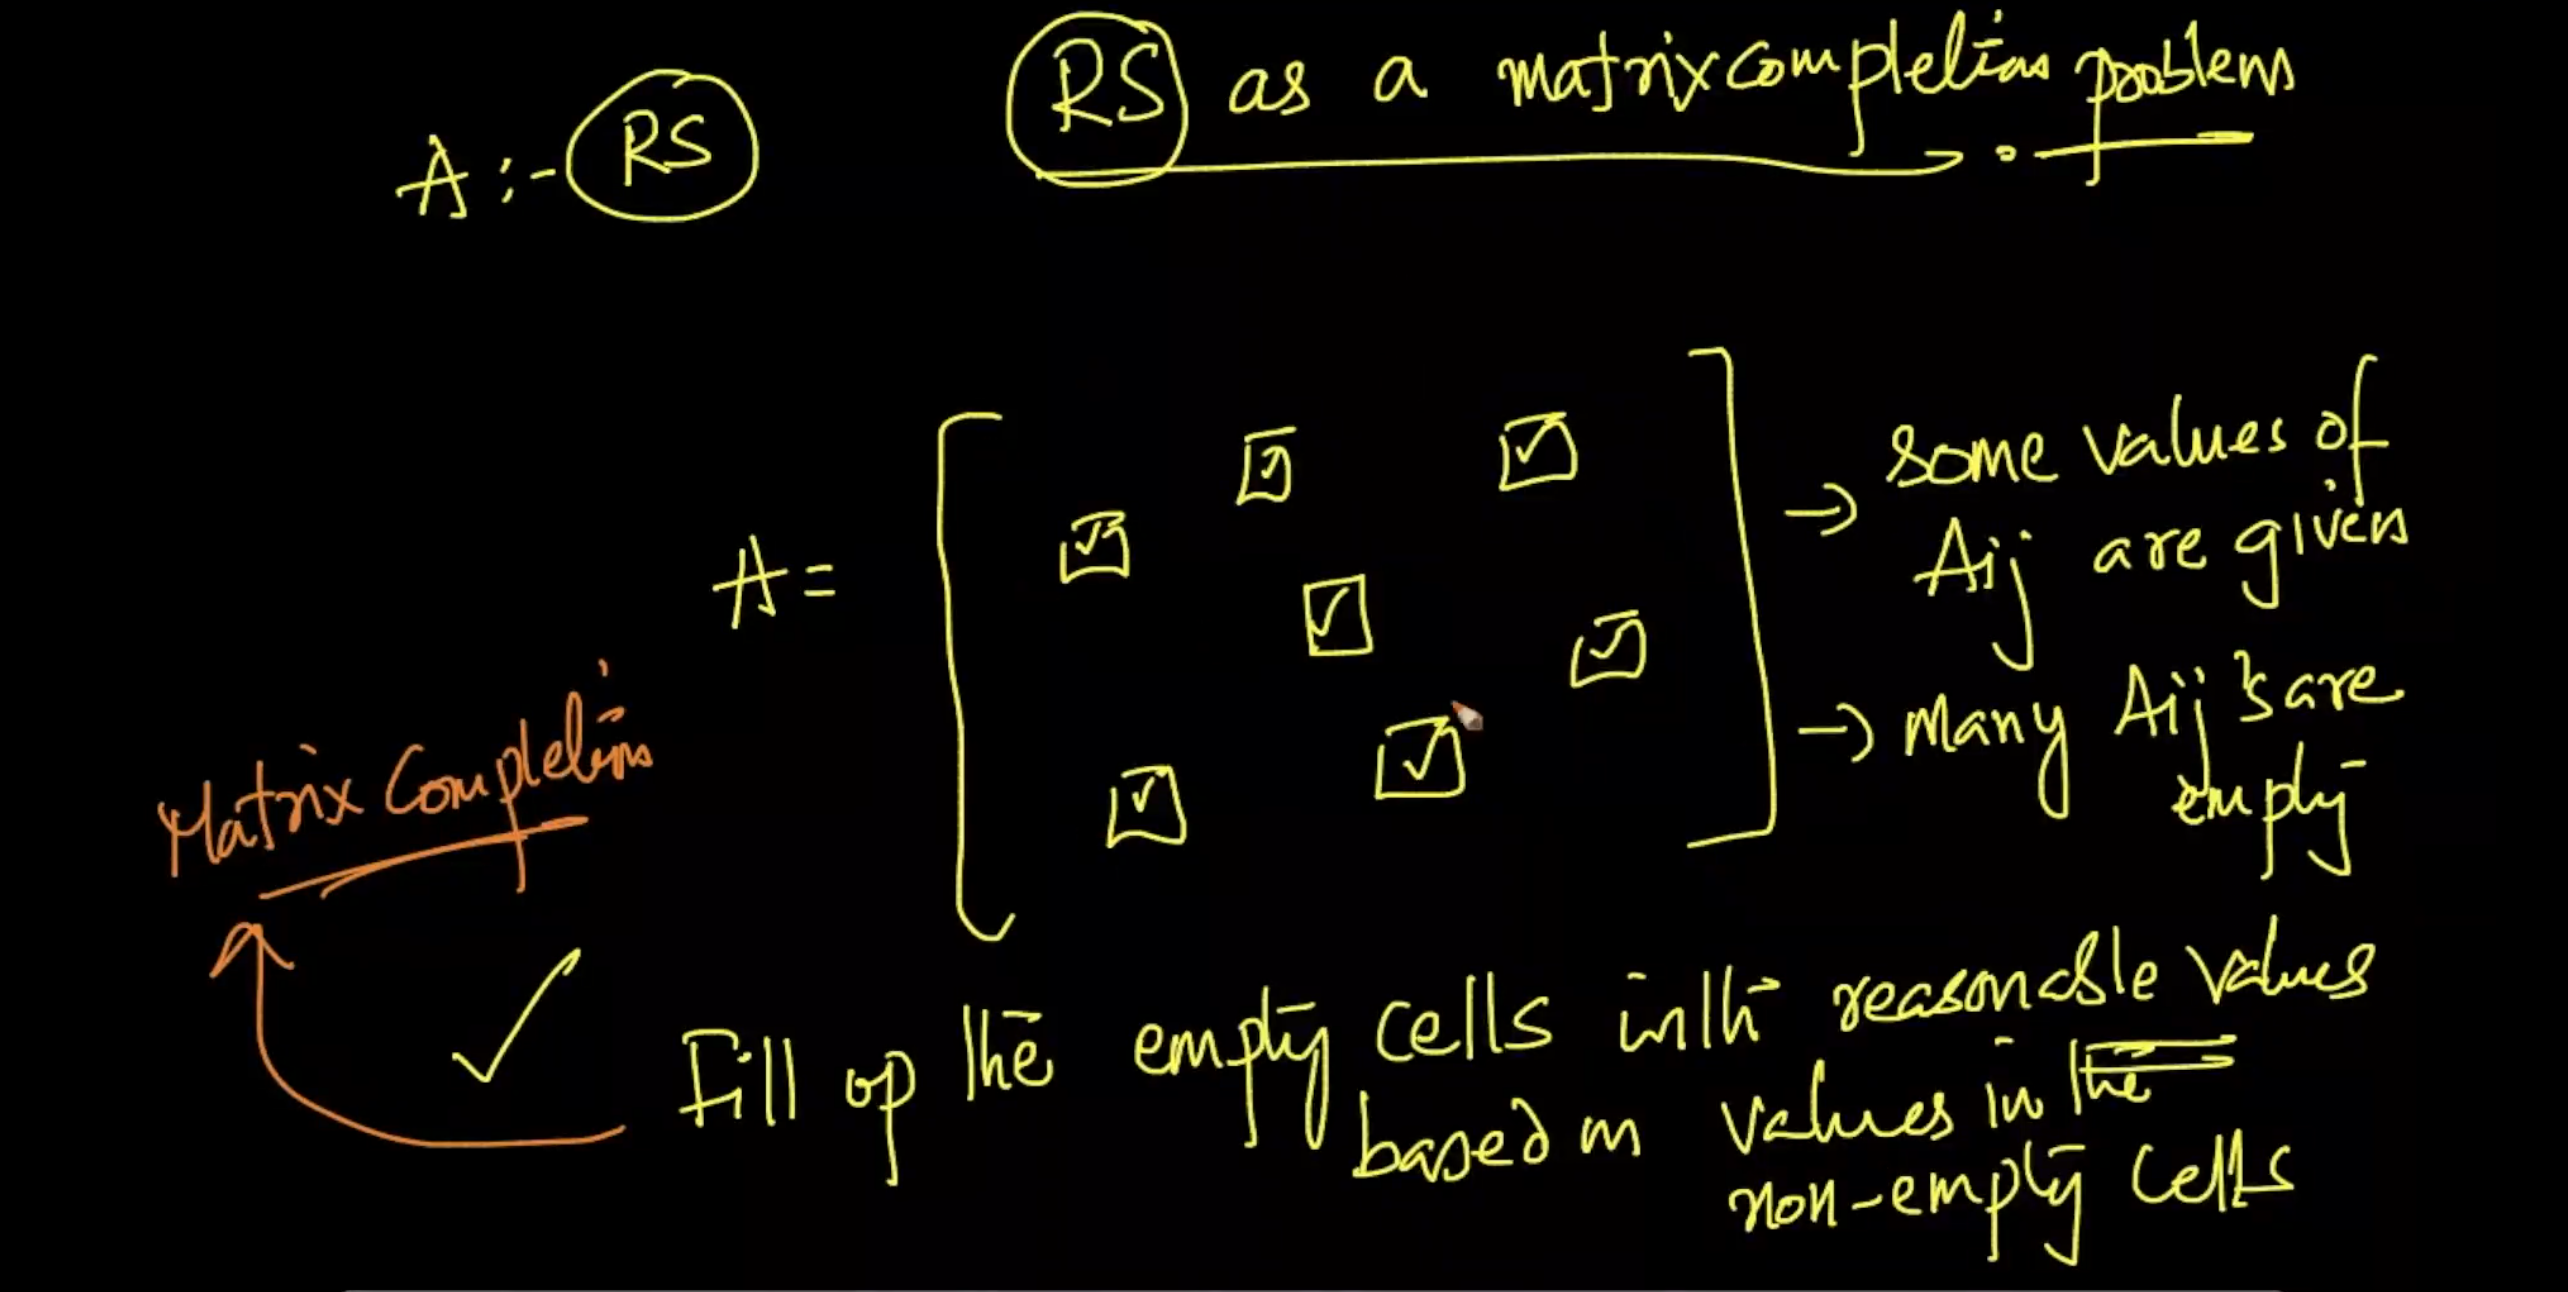 A :- RS
RS as a matrix completion problem
A =
→ some values of
Aij are given
→ Many Aij's are
empty
Matrix Completion
Fill up the empty cells with reasonable values
based on values in the
non-empty cells